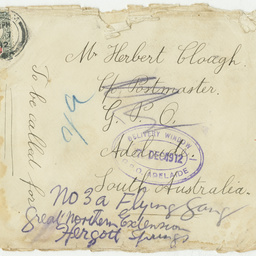 Mr Herbert Cloagh.
C/o Postmaster.
G. P. O.
Adelaide
South Australia.
To be called for
DELIVERY WINDOW
DEC 1912
ADELAIDE
No 3a Flying Gang
Great Northern Extension
Hergott Springs